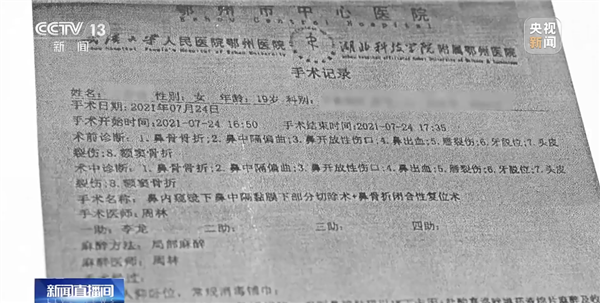 CCTV 13
新闻
央视
新闻
鄂州市中心医院
Ezhou Central Hospital
武汉大学人民医院鄂州医院 湖北科技学院附属鄂州医院
手术记录
姓名: 性别: 女 年龄: 19岁 科别:
手术日期: 2021年07月24日
手术开始时间: 2021-07-24 16:50 手术结束时间: 2021-07-24 17:35
术前诊断: 1.鼻骨骨折; 2.鼻中隔偏曲; 3.鼻开放性伤口; 4.鼻出血; 5.唇裂伤; 6.牙脱位; 7.头皮
裂伤; 8.额窦骨折
术中诊断: 1.鼻骨骨折; 2.鼻中隔偏曲; 3.鼻开放性伤口; 4.鼻出血; 5.唇裂伤; 6.牙脱位; 7.头皮
裂伤; 8.额窦骨折
手术名称: 鼻内窥镜下鼻中隔黏膜下部分切除术+鼻骨骨折闭合性复位术
手术医师: 周林
一助: 李龙 二助: 三助: 四助:
麻醉方法: 局部麻醉
麻醉医师: 周林
手术经过:
仰卧位, 常规消毒铺巾;
新闻直播间